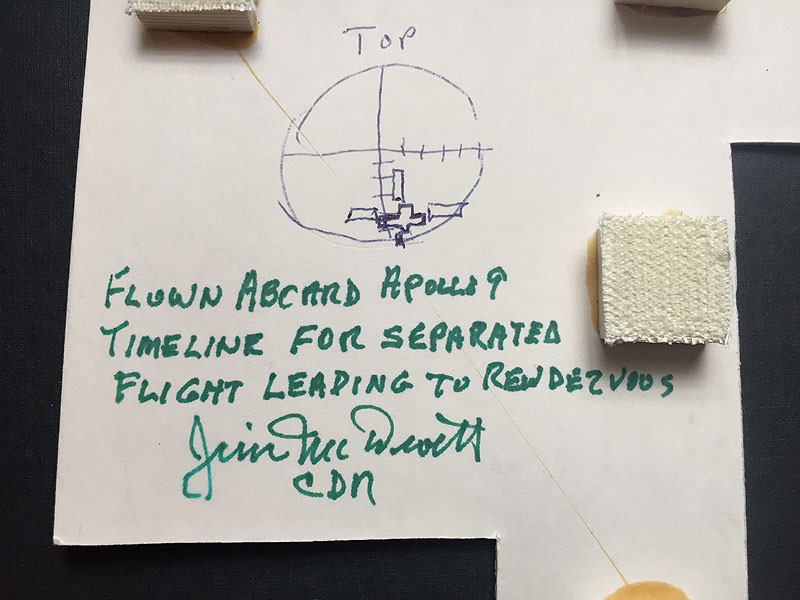 TOP
FLOWN ABOARD APOLLO 9
TIMELINE FOR SEPARATED
FLIGHT LEADING TO RENDEZVOUS
Jim McDivitt
CDR